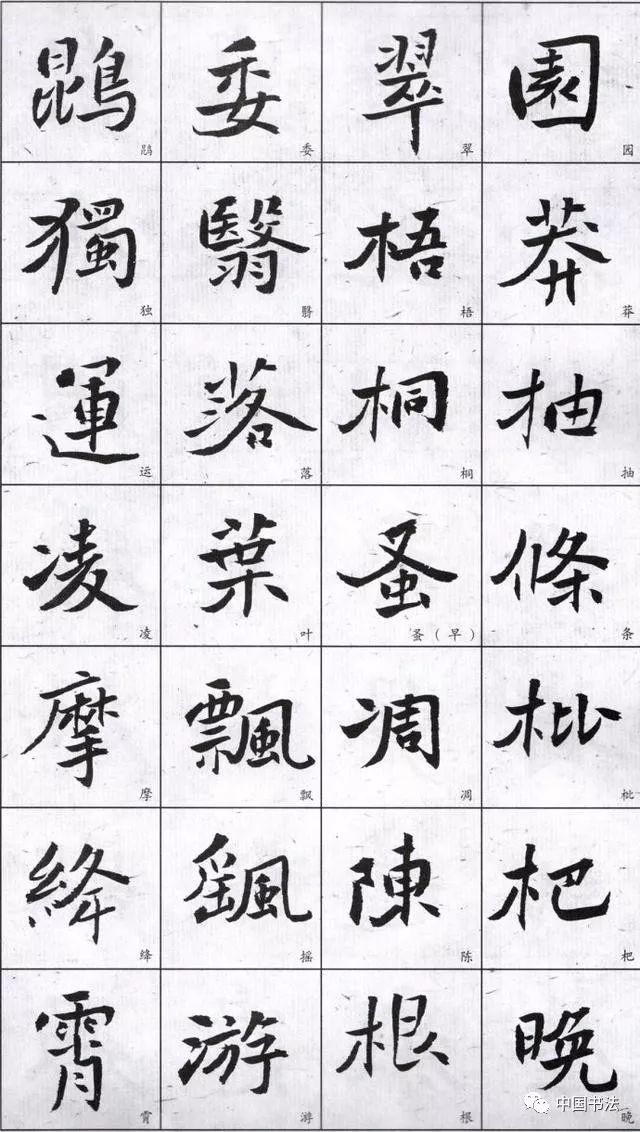 園 园
莽 莽
抽 抽
條 条
枇 枇
杷 杷
晚 晚
翠 翠
梧 梧
桐 桐
蚤 蚤（早）
凋 凋
陳 陈
根 根
委 委
翳 翳
落 落
葉 叶
飄 飘
颻 摇
游 游
鵾 鹍
獨 独
運 运
凌 凌
摩 摩
絳 绛
霄 霄
中国书法